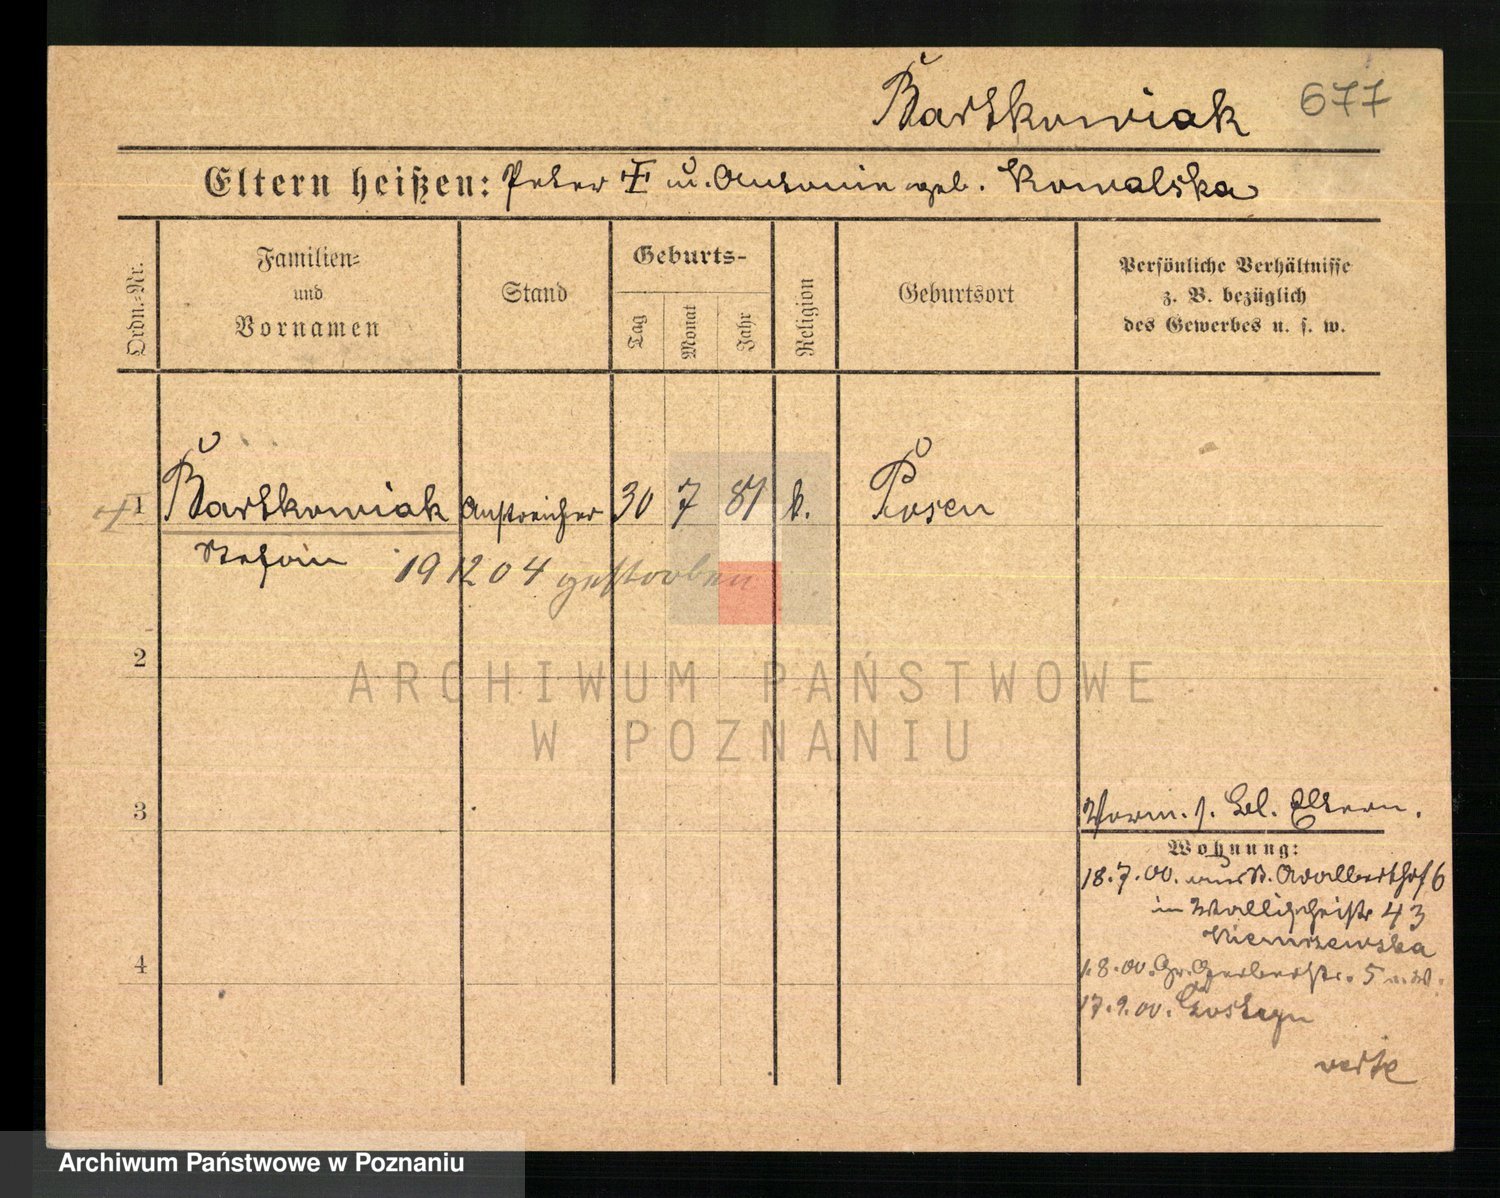 Bartkowiak 677
Eltern heißen: Peter † u. Antonie geb. Kowalska
Ordn.-Nr.
Familien-
und
Vornamen
Stand
Geburts-
Tag
Monat
Jahr
Religion
Geburtsort
Persönliche Verhältnisse
z. B. bezüglich
des Gewerbes u. s. w.
1 Bartkowiak Anstreicher 30 7 81 k. Posen
Stefan 19 12 04 gestorben
2
3
4
Vorm. s. Bl. Eltern.
Wohnung:
18.7.00. aus St. Adalberthof 6
in Wallischeistr 43
1.8.00. Gr. Gerberstr. 5
17.9.00. Gostyn
verte
ARCHIWUM PAŃSTWOWE
W POZNANIU
Archiwum Państwowe w Poznaniu